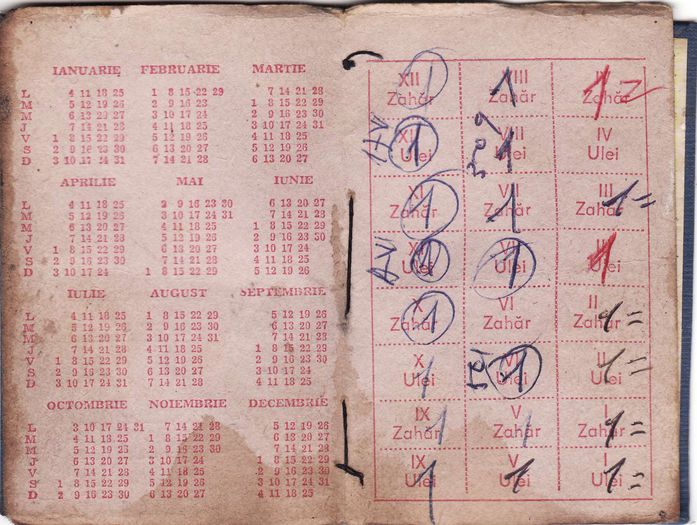 IANUARIE FEBRUARIE MARTIE
L 4 11 18 25 1 8 15 22 29 7 14 21 28
M 5 12 19 26 2 9 16 23 1 8 15 22 29
M 6 13 20 27 3 10 17 24 2 9 16 23 30
J 7 14 21 28 4 11 18 25 3 10 17 24 31
V 1 8 15 22 29 5 12 19 26 4 11 18 25
S 2 9 16 23 30 6 13 20 27 5 12 19 26
D 3 10 17 24 31 7 14 21 28 6 13 20 27
APRILIE MAI IUNIE
L 4 11 18 25 2 9 16 23 30 6 13 20 27
M 5 12 19 26 3 10 17 24 31 7 14 21 28
M 6 13 20 27 4 11 18 25 1 8 15 22 29
J 7 14 21 28 5 12 19 26 2 9 16 23 30
V 1 8 15 22 29 6 13 20 27 3 10 17 24
S 2 9 16 23 30 7 14 21 28 4 11 18 25
D 3 10 17 24 1 8 15 22 29 5 12 19 26
IULIE AUGUST SEPTEMBRIE
L 4 11 18 25 1 8 15 22 29 5 12 19 26
M 5 12 19 26 2 9 16 23 30 6 13 20 27
M 6 13 20 27 3 10 17 24 31 7 14 21 28
J 7 14 21 28 4 11 18 25 1 8 15 22 29
V 1 8 15 22 29 5 12 19 26 2 9 16 23 30
S 2 9 16 23 30 6 13 20 27 3 10 17 24
D 3 10 17 24 31 7 14 21 28 4 11 18 25
OCTOMBRIE NOIEMBRIE DECEMBRIE
L 3 10 17 24 31 7 14 21 28 5 12 19 26
M 4 11 18 25 1 8 15 22 29 6 13 20 27
M 5 12 19 26 2 9 16 23 30 7 14 21 28
J 6 13 20 27 3 10 17 24 1 8 15 22 29
V 7 14 21 28 4 11 18 25 2 9 16 23 30
S 1 8 15 22 29 5 12 19 26 3 10 17 24 31
D 2 9 16 23 30 6 13 20 27 4 11 18 25
XII 1 VIII 1 1
Zahăr Zahăr Zahăr
XII 1 VIII 1 IV
Ulei Ulei Ulei
XI 1 VII 1 III 1 =
Zahăr Zahăr Zahăr
1 1 1
Ulei Ulei Ulei
X 1 VI II 1 =
Zahăr Zahăr Zahăr
X 1 1 II 1 =
Ulei Ulei Ulei
IX 1 V 1 I 1 =
Zahăr Zahăr Zahăr
IX 1 V 1 I 1 =
Ulei Ulei Ulei